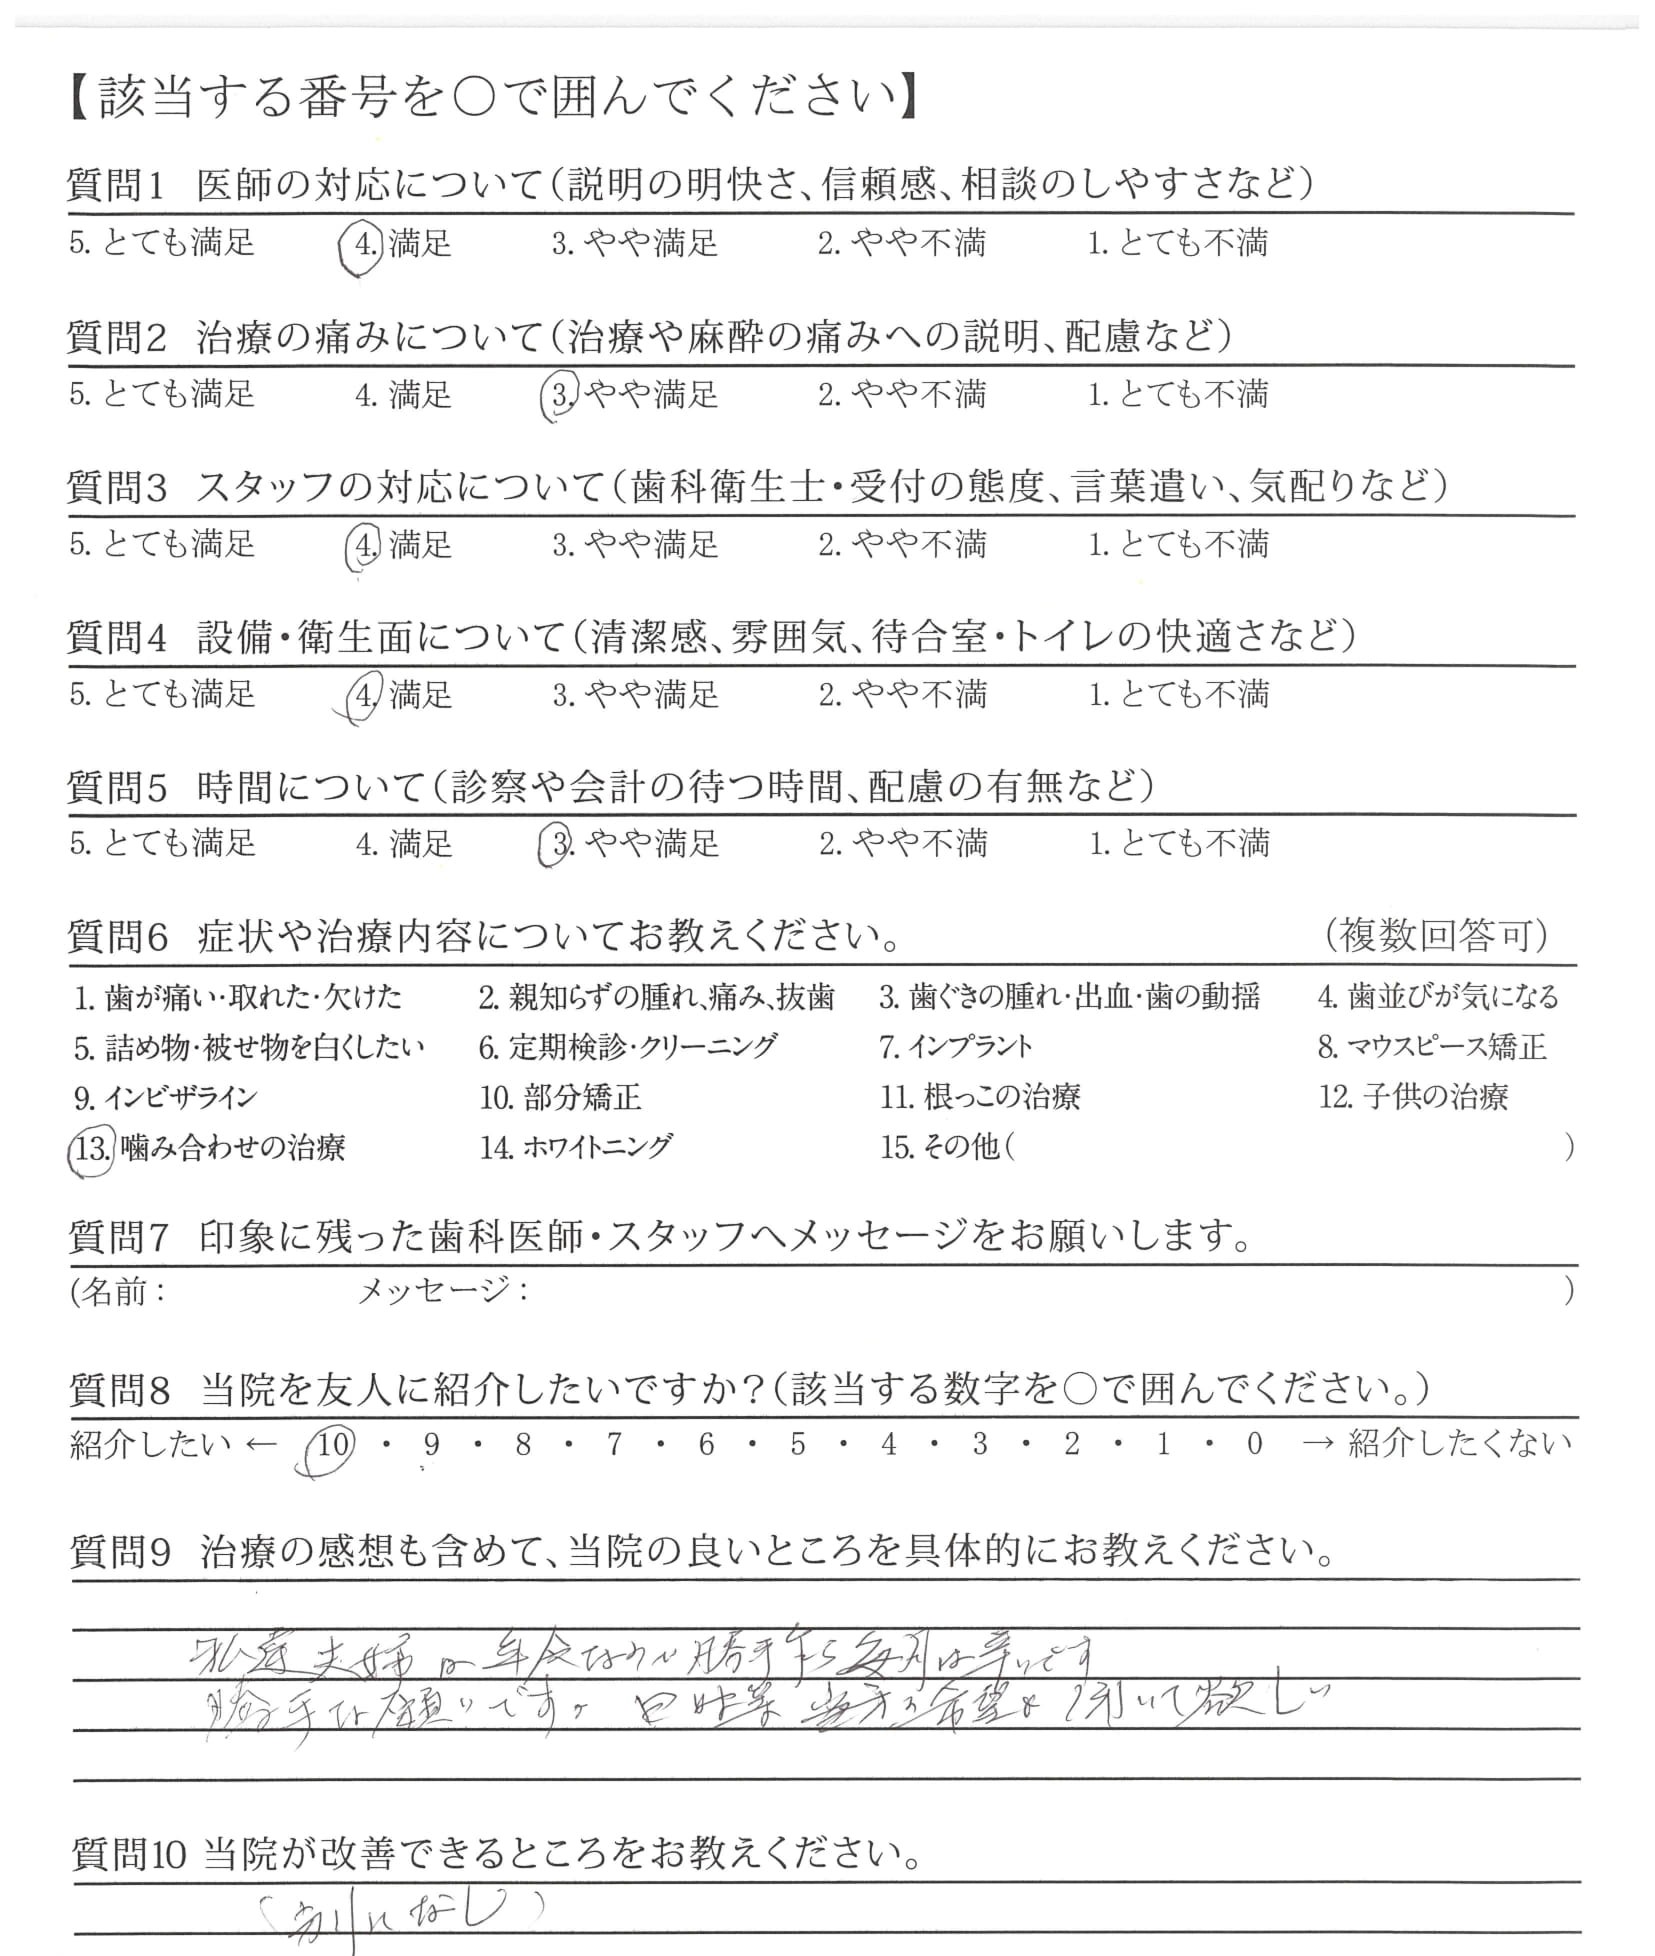 【該当する番号を○で囲んでください】
質問1 医師の対応について(説明の明快さ、信頼感、相談のしやすさなど)
5. とても満足 4. 満足 3. やや満足 2. やや不満 1. とても不満
質問2 治療の痛みについて(治療や麻酔の痛みへの説明、配慮など)
5. とても満足 4. 満足 3. やや満足 2. やや不満 1. とても不満
質問3 スタッフの対応について(歯科衛生士・受付の態度、言葉遣い、気配りなど)
5. とても満足 4. 満足 3. やや満足 2. やや不満 1. とても不満
質問4 設備・衛生面について(清潔感、雰囲気、待合室・トイレの快適さなど)
5. とても満足 4. 満足 3. やや満足 2. やや不満 1. とても不満
質問5 時間について(診察や会計の待つ時間、配慮の有無など)
5. とても満足 4. 満足 3. やや満足 2. やや不満 1. とても不満
質問6 症状や治療内容についてお教えください。 (複数回答可)
1. 歯が痛い・取れた・欠けた 2. 親知らずの腫れ、痛み、抜歯 3. 歯ぐきの腫れ・出血・歯の動揺 4. 歯並びが気になる
5. 詰め物・被せ物を白くしたい 6. 定期検診・クリーニング 7. インプラント 8. マウスピース矯正
9. インビザライン 10. 部分矯正 11. 根っこの治療 12. 子供の治療
13. 噛み合わせの治療 14. ホワイトニング 15. その他( )
質問7 印象に残った歯科医師・スタッフへメッセージをお願いします。
(名前: メッセージ: )
質問8 当院を友人に紹介したいですか?(該当する数字を○で囲んでください。)
紹介したい ← 10 ・ 9 ・ 8 ・ 7 ・ 6 ・ 5 ・ 4 ・ 3 ・ 2 ・ 1 ・ 0 → 紹介したくない
質問9 治療の感想も含めて、当院の良いところを具体的にお教えください。
私達夫婦は年金 勝手 は幸いです
勝手な願いです。 日時等 希望 聞いて欲しい
質問10 当院が改善できるところをお教えください。
(別になし)